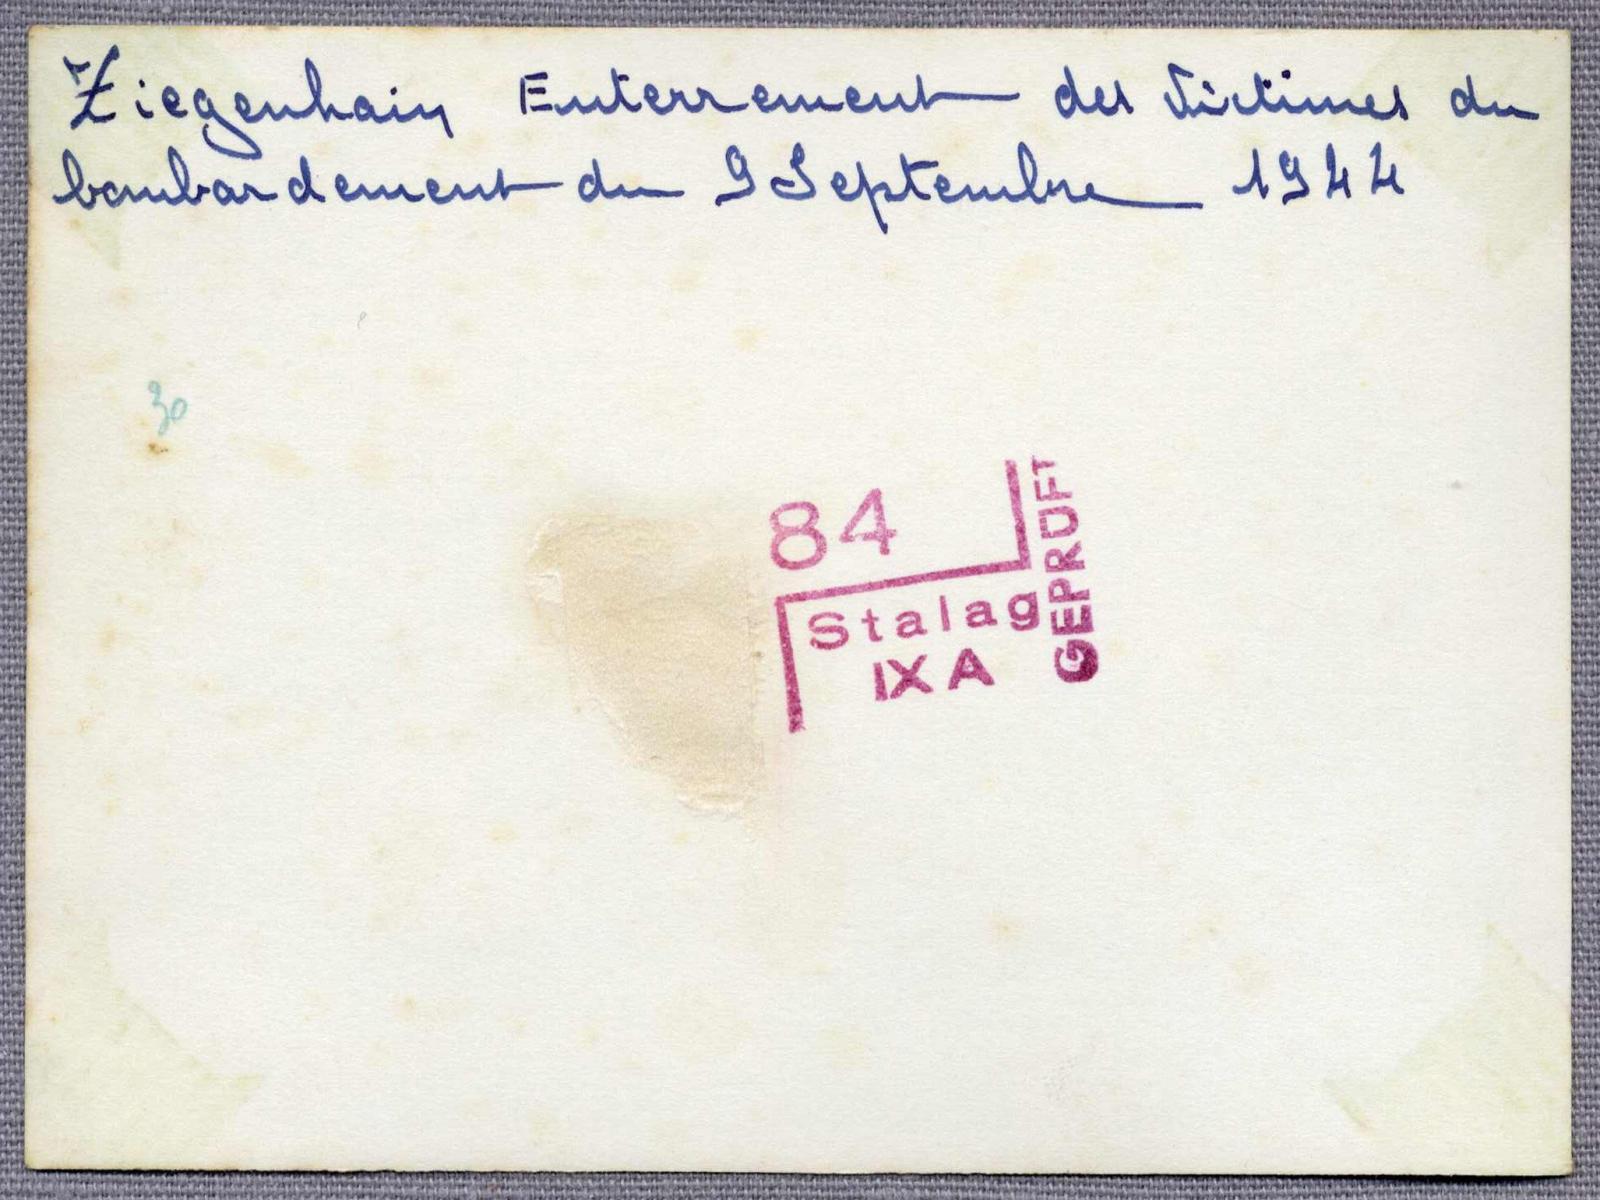 Ziegenhain Enterrement des Victimes du
bombardement du 9 Septembre 1944
30
84
Stalag
IX A
GEPRÜFT